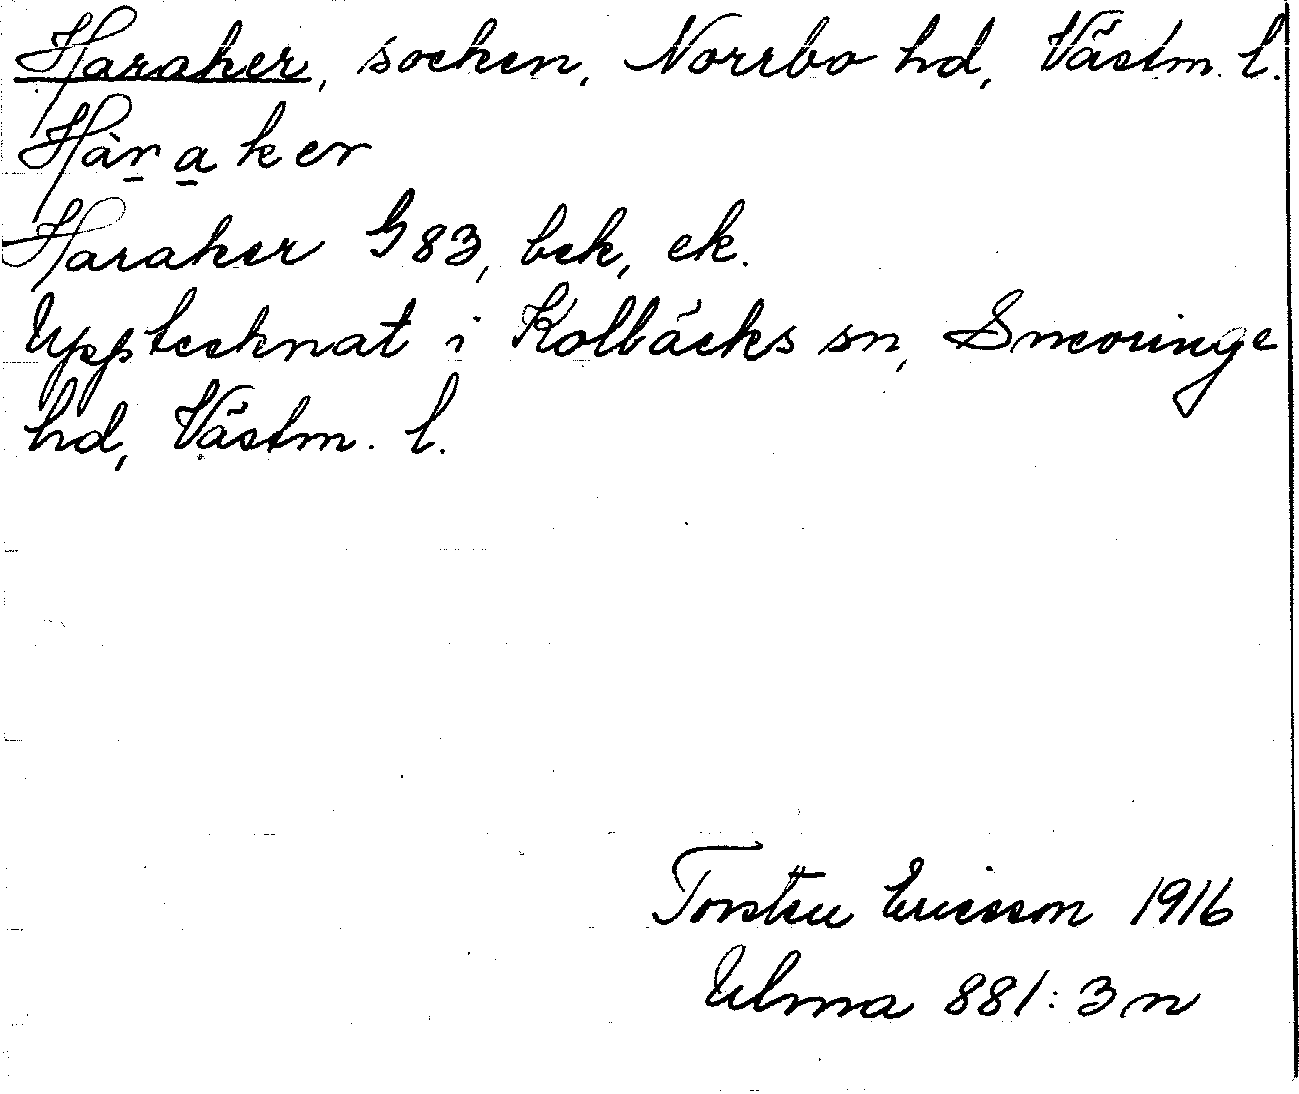 Haraker, socken, Norrbo hd, Västm. l.
Hàr̲a̲ker
Haraker G 83, bek, ek.
Upptecknat i Kolbäcks sn, Snevringe
hd, Västm. l.
Torsten Ericsson 1916
Ulma 881:3 n